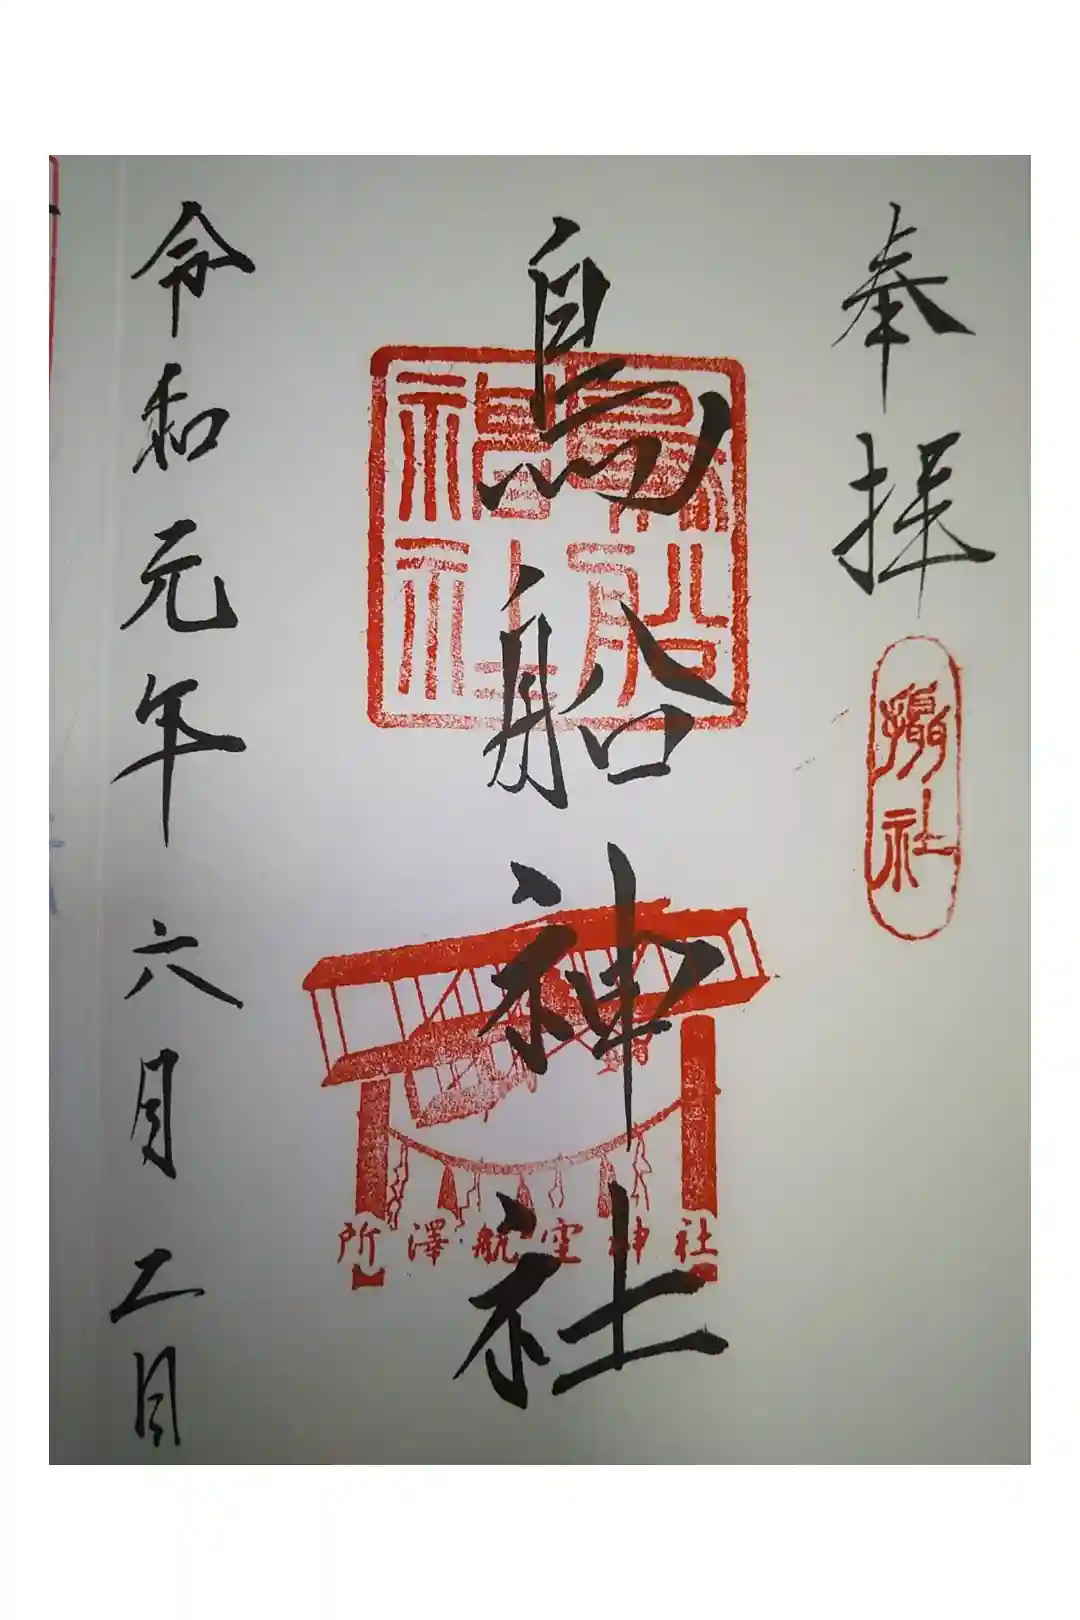 奉拝
攝社
鳥船神社
鳥船神社
所澤航空神社
令和元年六月二日